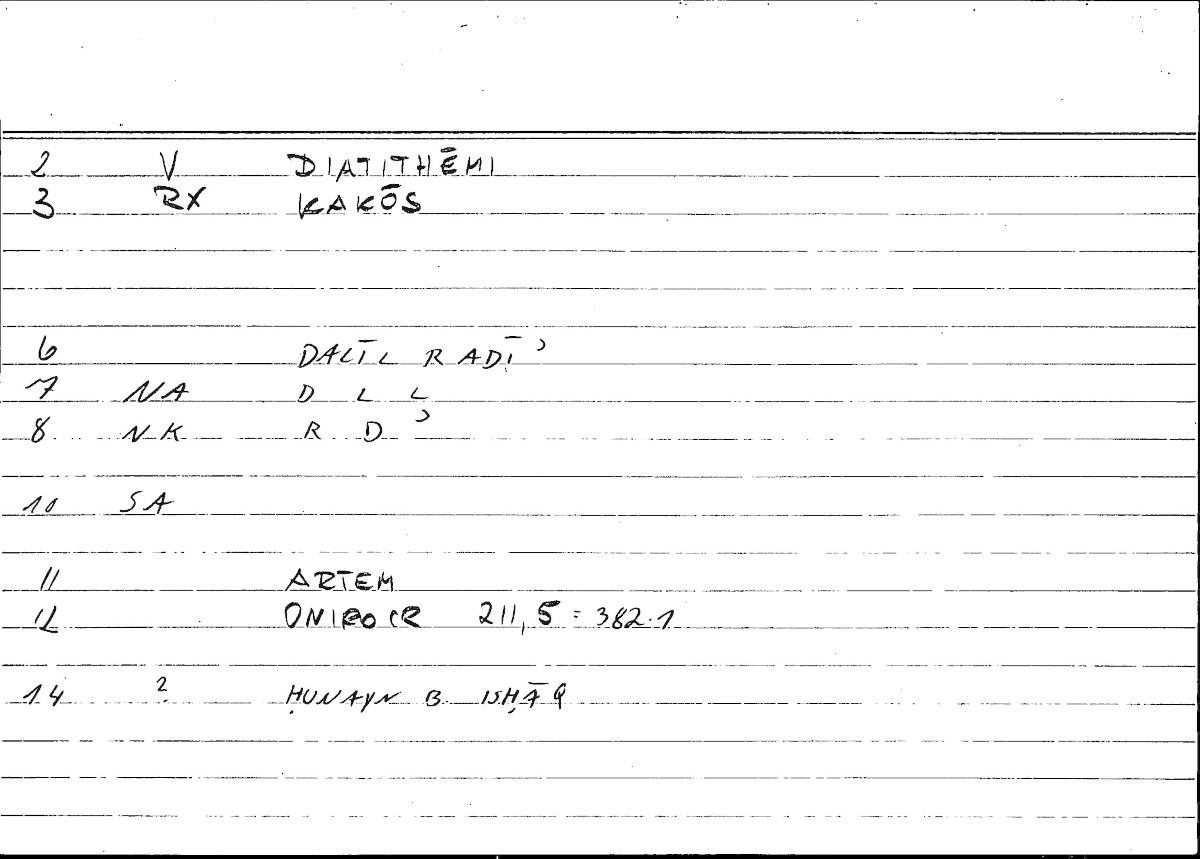 2 V DIATITHĒMI
3 RX KAKŌS
6 DALĪL RADĪʾ
7 NA D L L
8 NK R D ʾ
10 SA
11 ARTEM
12 ONIROCR 211,5 = 382.1
14 ? ḤUNAYN B. ISḤĀQ